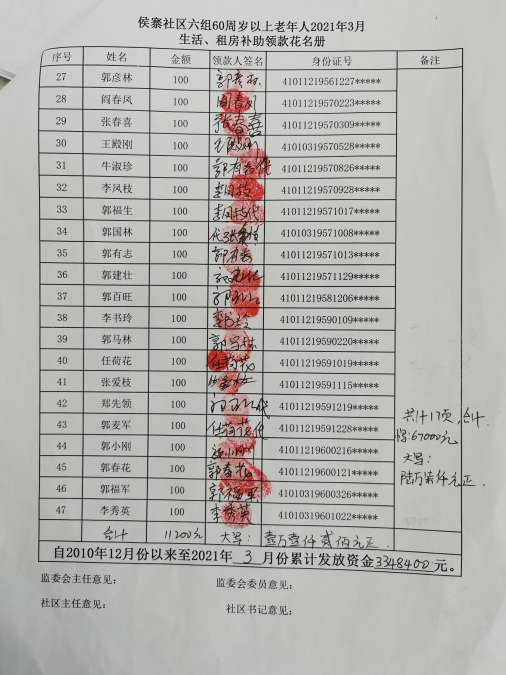 侯寨社区六组60周岁以上老年人2021年3月
生活、租房补助领款花名册
序号 姓名 金额 领款人签名 身份证号 备注
27 郭彦林 100 41011219561227*****
28 阎春凤 100 41011219570223*****
29 张春喜 100 张春喜 41011219570309*****
30 王殿刚 100 41010319570528*****
31 牛淑珍 100 41011219570826*****
32 李凤枝 100 李凤枝 41011219570928*****
33 郭福生 100 李凤枝代 41011219571017*****
34 郭国林 100 41010319571008*****
35 郭有志 100 郭有志 41011219571013*****
36 郭建壮 100 41011219571129*****
37 郭百旺 100 41011219581206*****
38 李书玲 100 李书玲 41011219590109*****
39 郭马林 100 郭马林 41011219590220*****
40 任荷花 100 任荷花 41011219591019*****
41 张爱枝 100 41011219591115*****
42 郑先领 100 41011219591219*****
43 郭麦军 100 任荷花代 41011219591228*****
44 郭小刚 100 41011219600216*****
45 郭春花 100 郭春花 41011219600121*****
46 郭福军 100 郭福军 41010319600326*****
47 李秀英 100 李秀英 41010319601022*****
共计17页,合计
67000元
大写:
陆万柒仟元正
合计 11200元 大写: 壹万壹仟贰佰元正
自2010年12月份以来至2021年 3 月份累计发放资金3348400元。
监委会主任意见: 监委会委员意见:
社区主任意见: 社区书记意见: